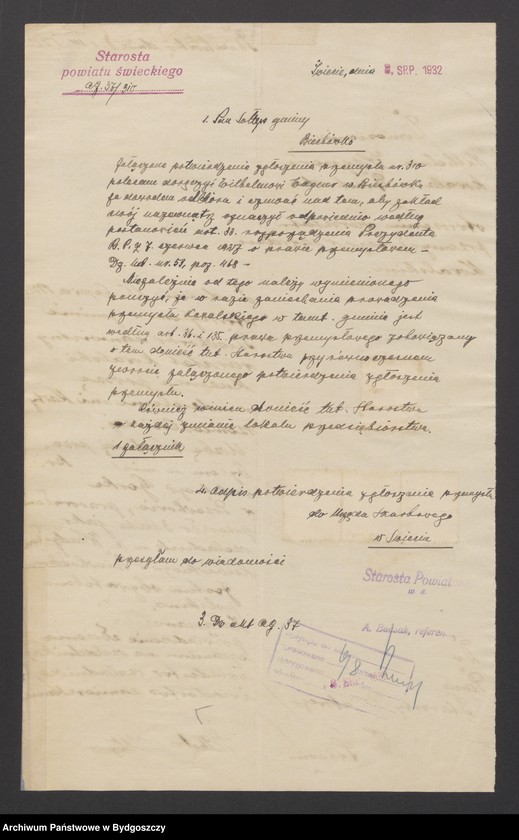 Starosta
powiatu świeckiego
Ag. 37/310
Świecie, dnia 8. SRP. 1932
1. Pan Sołtys gminy
Załączone potwierdzenie zgłoszenia przemysłu nr. 310
polecam doręczyć Wilhelmowi w
za dowodem odbioru i czuwać nad tem, aby zakład
swój nazewnątrz oznaczył odpowiednio według
postanowień art. 33. rozporządzenia Prezydenta
R.P. z 7 czerwca 1927 o prawie przemysłowem -
Dz. Ust. nr. 53, poz. 468 -
Niezależnie od tego należy wymienionego
pouczyć, że w razie zaniechania prowadzenia
przemysłu kowalskiego w tamt. gminie jest
według art. 36. i 135. prawa przemysłowego zobowiązany
o tem donieść tut. Starostwu przy równoczesnem
zwrocie załączonego potwierdzenia zgłoszenia
przemysłu.
Również winien donieść tut. Starostwu
o każdej zmianie lokalu przedsiębiorstwa.
1 załącznik
2. Odpis potwierdzenia zgłoszenia przemysłu
do Urzędu Skarbowego
w Świeciu
przesyłam do wiadomości
Starosta Powiat
w z.
A. referen
3. Do akt Ag. 37
Archiwum Państwowe w Bydgoszczy